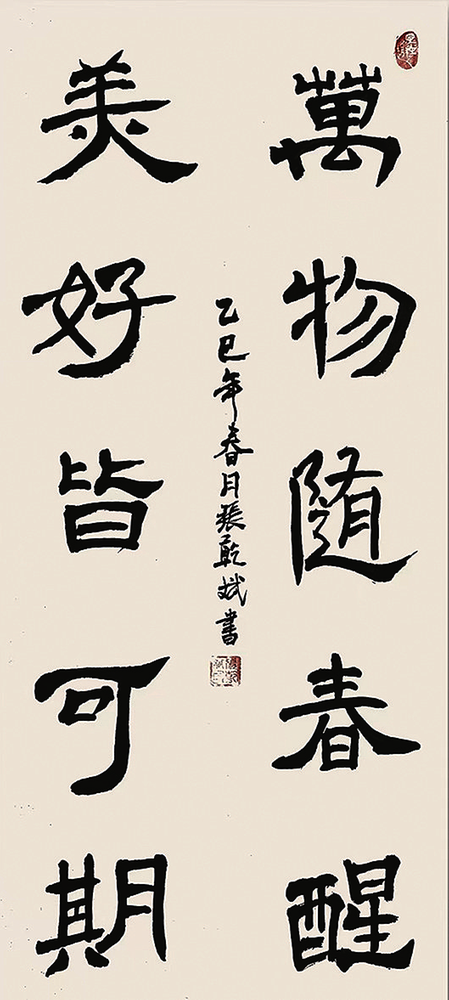 萬物随春醒
美好皆可期
乙巳年春月張乾斌書